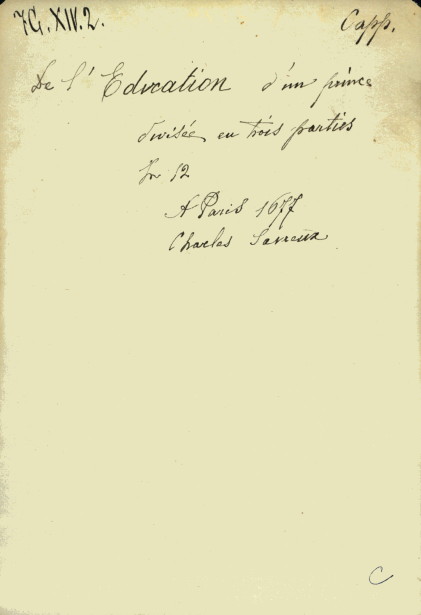 7G.XIV.2.
Capp.
De l'Education d'un prince
divisée en trois parties
In 12
A Paris 1677
Charles Savreux
C